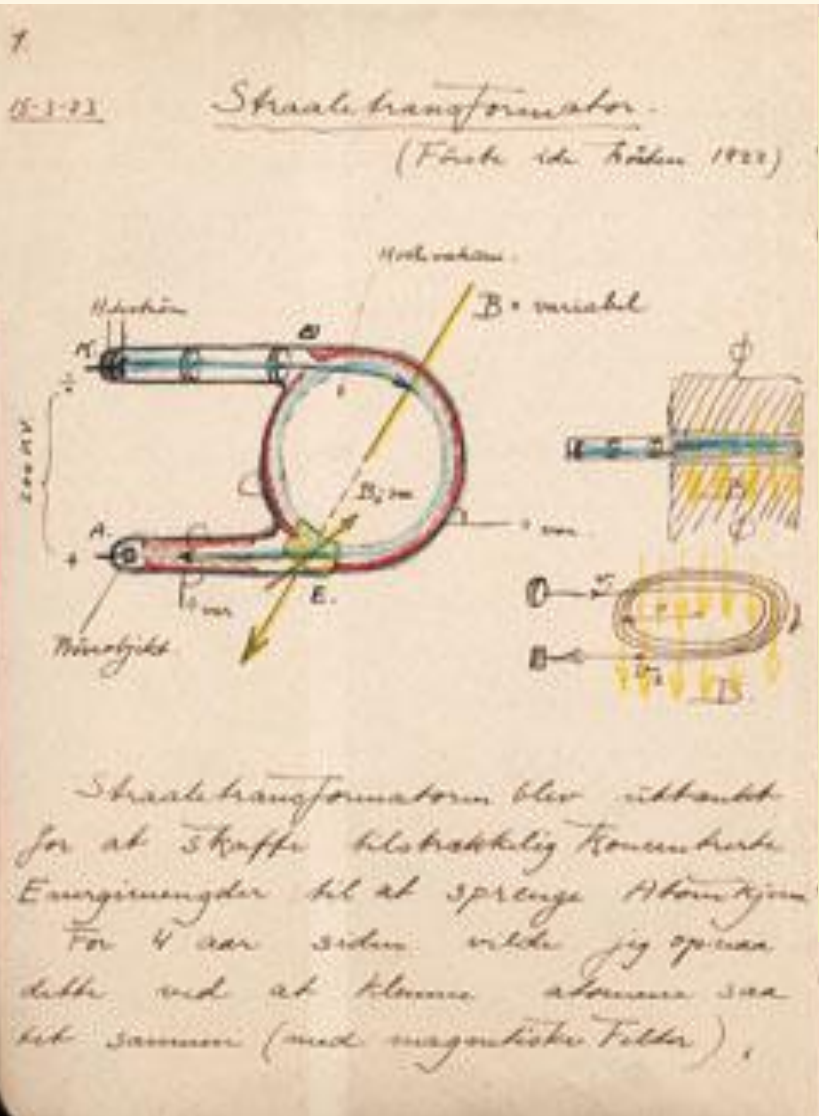 1.
15-3-23
Straaletransformator.
(Förste ide hösten 1922)
Hochvakuum.
B = variabel
K.
B
÷
i
200 KV
A.
+
E.
var.
var
Φ
B
Φ
r
v₂
B
Straaletransformatoren blev uttænkt
for at skaffe tilstrækkelig koncentrerte
Energimengder til at sprenge Atomkjern
For 4 aar siden vilde jeg opnaa
dette ved at klemme atomene saa
tæt sammen (med magnetiske Felter).